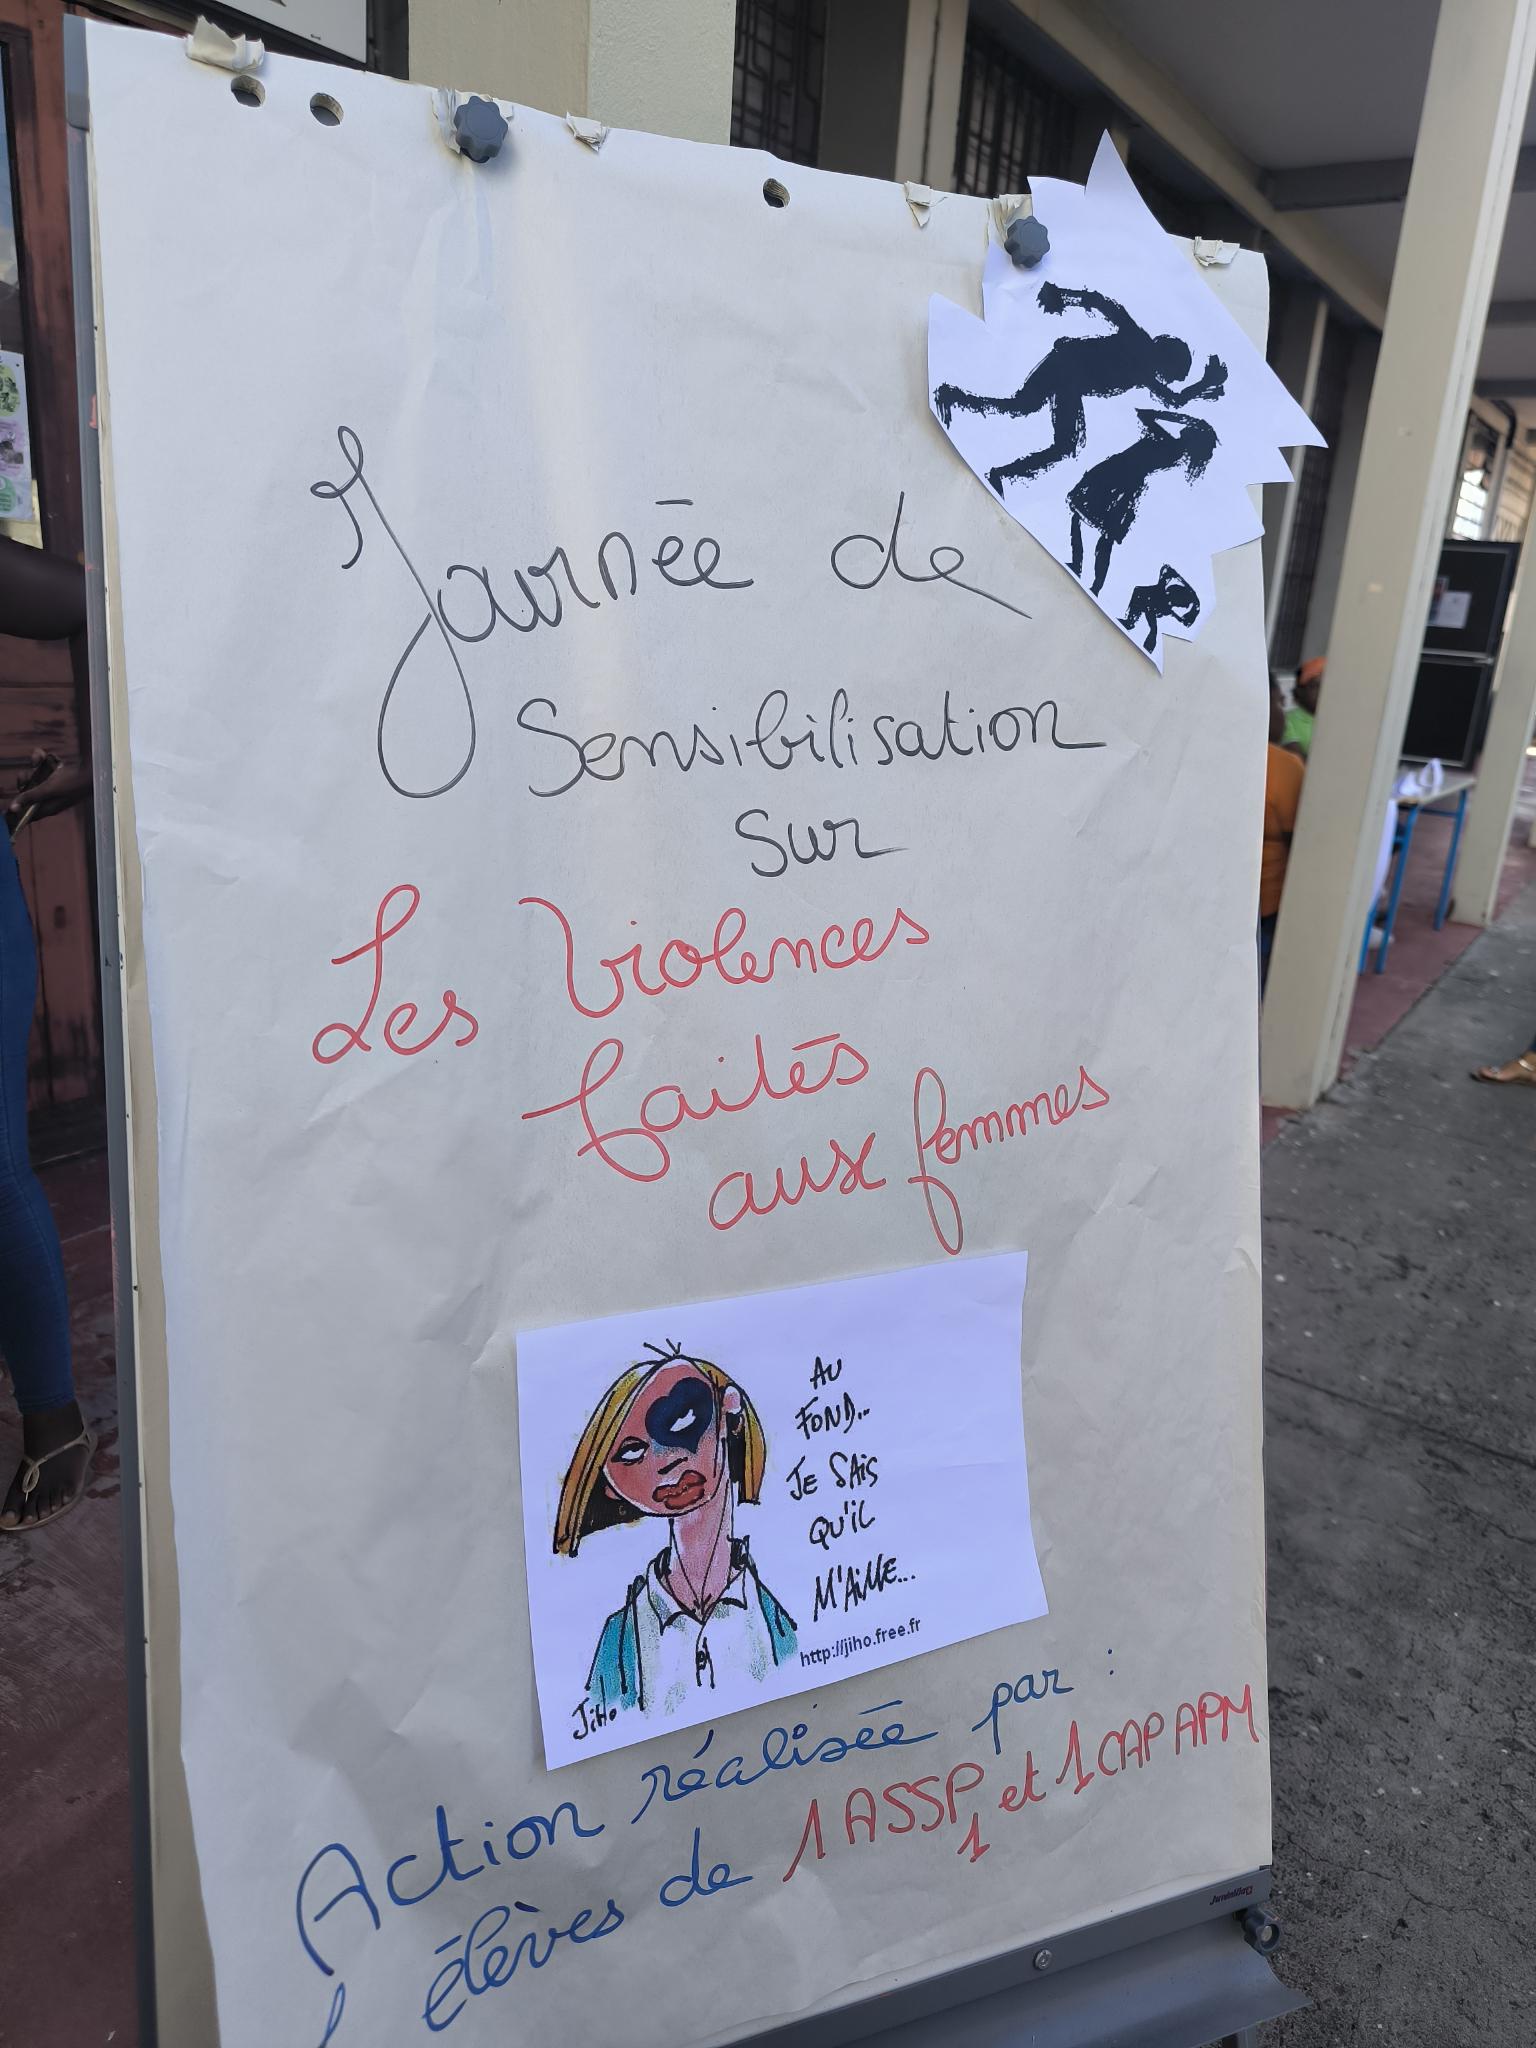 Journée de
Sensibilisation
sur
Les Violences
faites
aux femmes
AU
FOND..
JE SAIS
QU'IL
M'AIME...
http://jiho.free.fr
JiHo
Action réalisée par :
élèves de 1ASSP1 et 1CAP APM